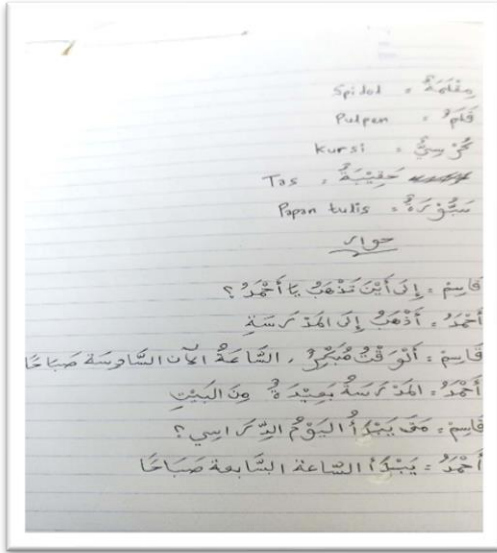 مِقْلَمَةٌ = Spidol
قَلَمٌ = Pulpen
كُرْسِيٌّ = kursi
حَقِيْبَةٌ = Tas
سَبُّوْرَةٌ = Papan tulis
حوار
قَاسِمْ = إِلَى أَيْنَ تَذْهَبُ يَا أَحْمَدُ ؟
أَحْمَدُ = أَذْهَبُ إِلَى المَدْرَسَةِ
قَاسِم = أَلْوَقْتُ مُبَكِّرٌ ، السَّاعَةُ الآن السَّادِسَة صَبَاحًا
أَحْمَدُ = المَدْرَسَةُ بَعِيْدَةٌ مِنَ الْبَيْتِ
قَاسِم = مَتَى يَبْدَأُ الْيَوْمُ الدِّرَاسِي ؟
أَحْمَدُ = يَبْدَأُ السَّاعة السَّابعة صَبَاحًا